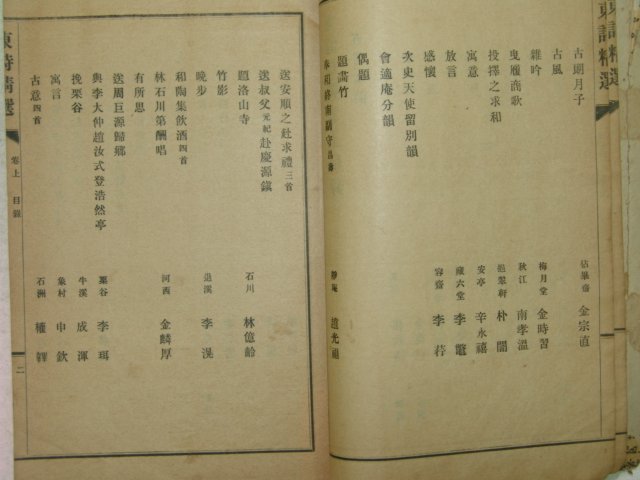 東詩精選
古朗月子 佔畢齋 金宗直
古風
雜吟 梅月堂 金時習
曳履商歌 秋江 南孝溫
投擇之求和 挹翠軒 朴誾
寓意 安亭 辛永禧
放言 藏六堂 李鼈
感懷 容齋 李荇
次史天使留別韻
會適庵分韻
偶題
題萵竹
靜庵 趙光祖
送安順之赴求禮三首 石川 林億齡
送叔父元紀赴慶源鎭
題洛山寺
竹影
晚步 退溪 李滉
和陶集飮酒四首
林石川第酬唱 河西 金麟厚
有所思
送周巨源歸鄕
與李大仲趙汝式登浩然亭 栗谷 李珥
挽栗谷 牛溪 成渾
寓言 象村 申欽
古意四首 石洲 權韠
東詩精選 卷上 目錄 二